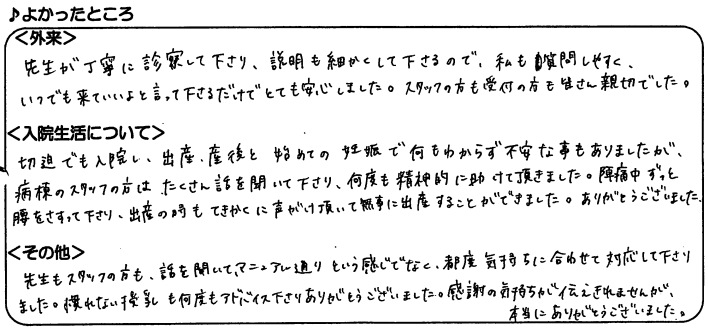 ♪よかったところ
<外来>
先生が丁寧に診察して下さり、説明も細かくして下さるので、私も質問しやすく、
いつでも来ていいよと言って下さるだけでとても安心しました。スタッフの方も受付の方も皆さん親切でした。
<入院生活について>
切迫でも入院し、出産、産後と始めての妊娠で何もわからず不安な事もありましたが、
病棟のスタッフの方はたくさん話を聞いて下さり、何度も精神的に助けて頂きました。陣痛中ずっと
腰をさすって下さり、出産の時もてきかくに声がけ頂いて無事に出産することができました。ありがとうございました。
<その他>
先生もスタッフの方も、話を聞いて、マニュアル通りという感じでなく、都度気持ちに合わせて対応して下さり
ました。慣れない授乳も何度もアドバイス下さりありがとうございました。感謝の気持ちが伝えきれませんが、
本当にありがとうございました。